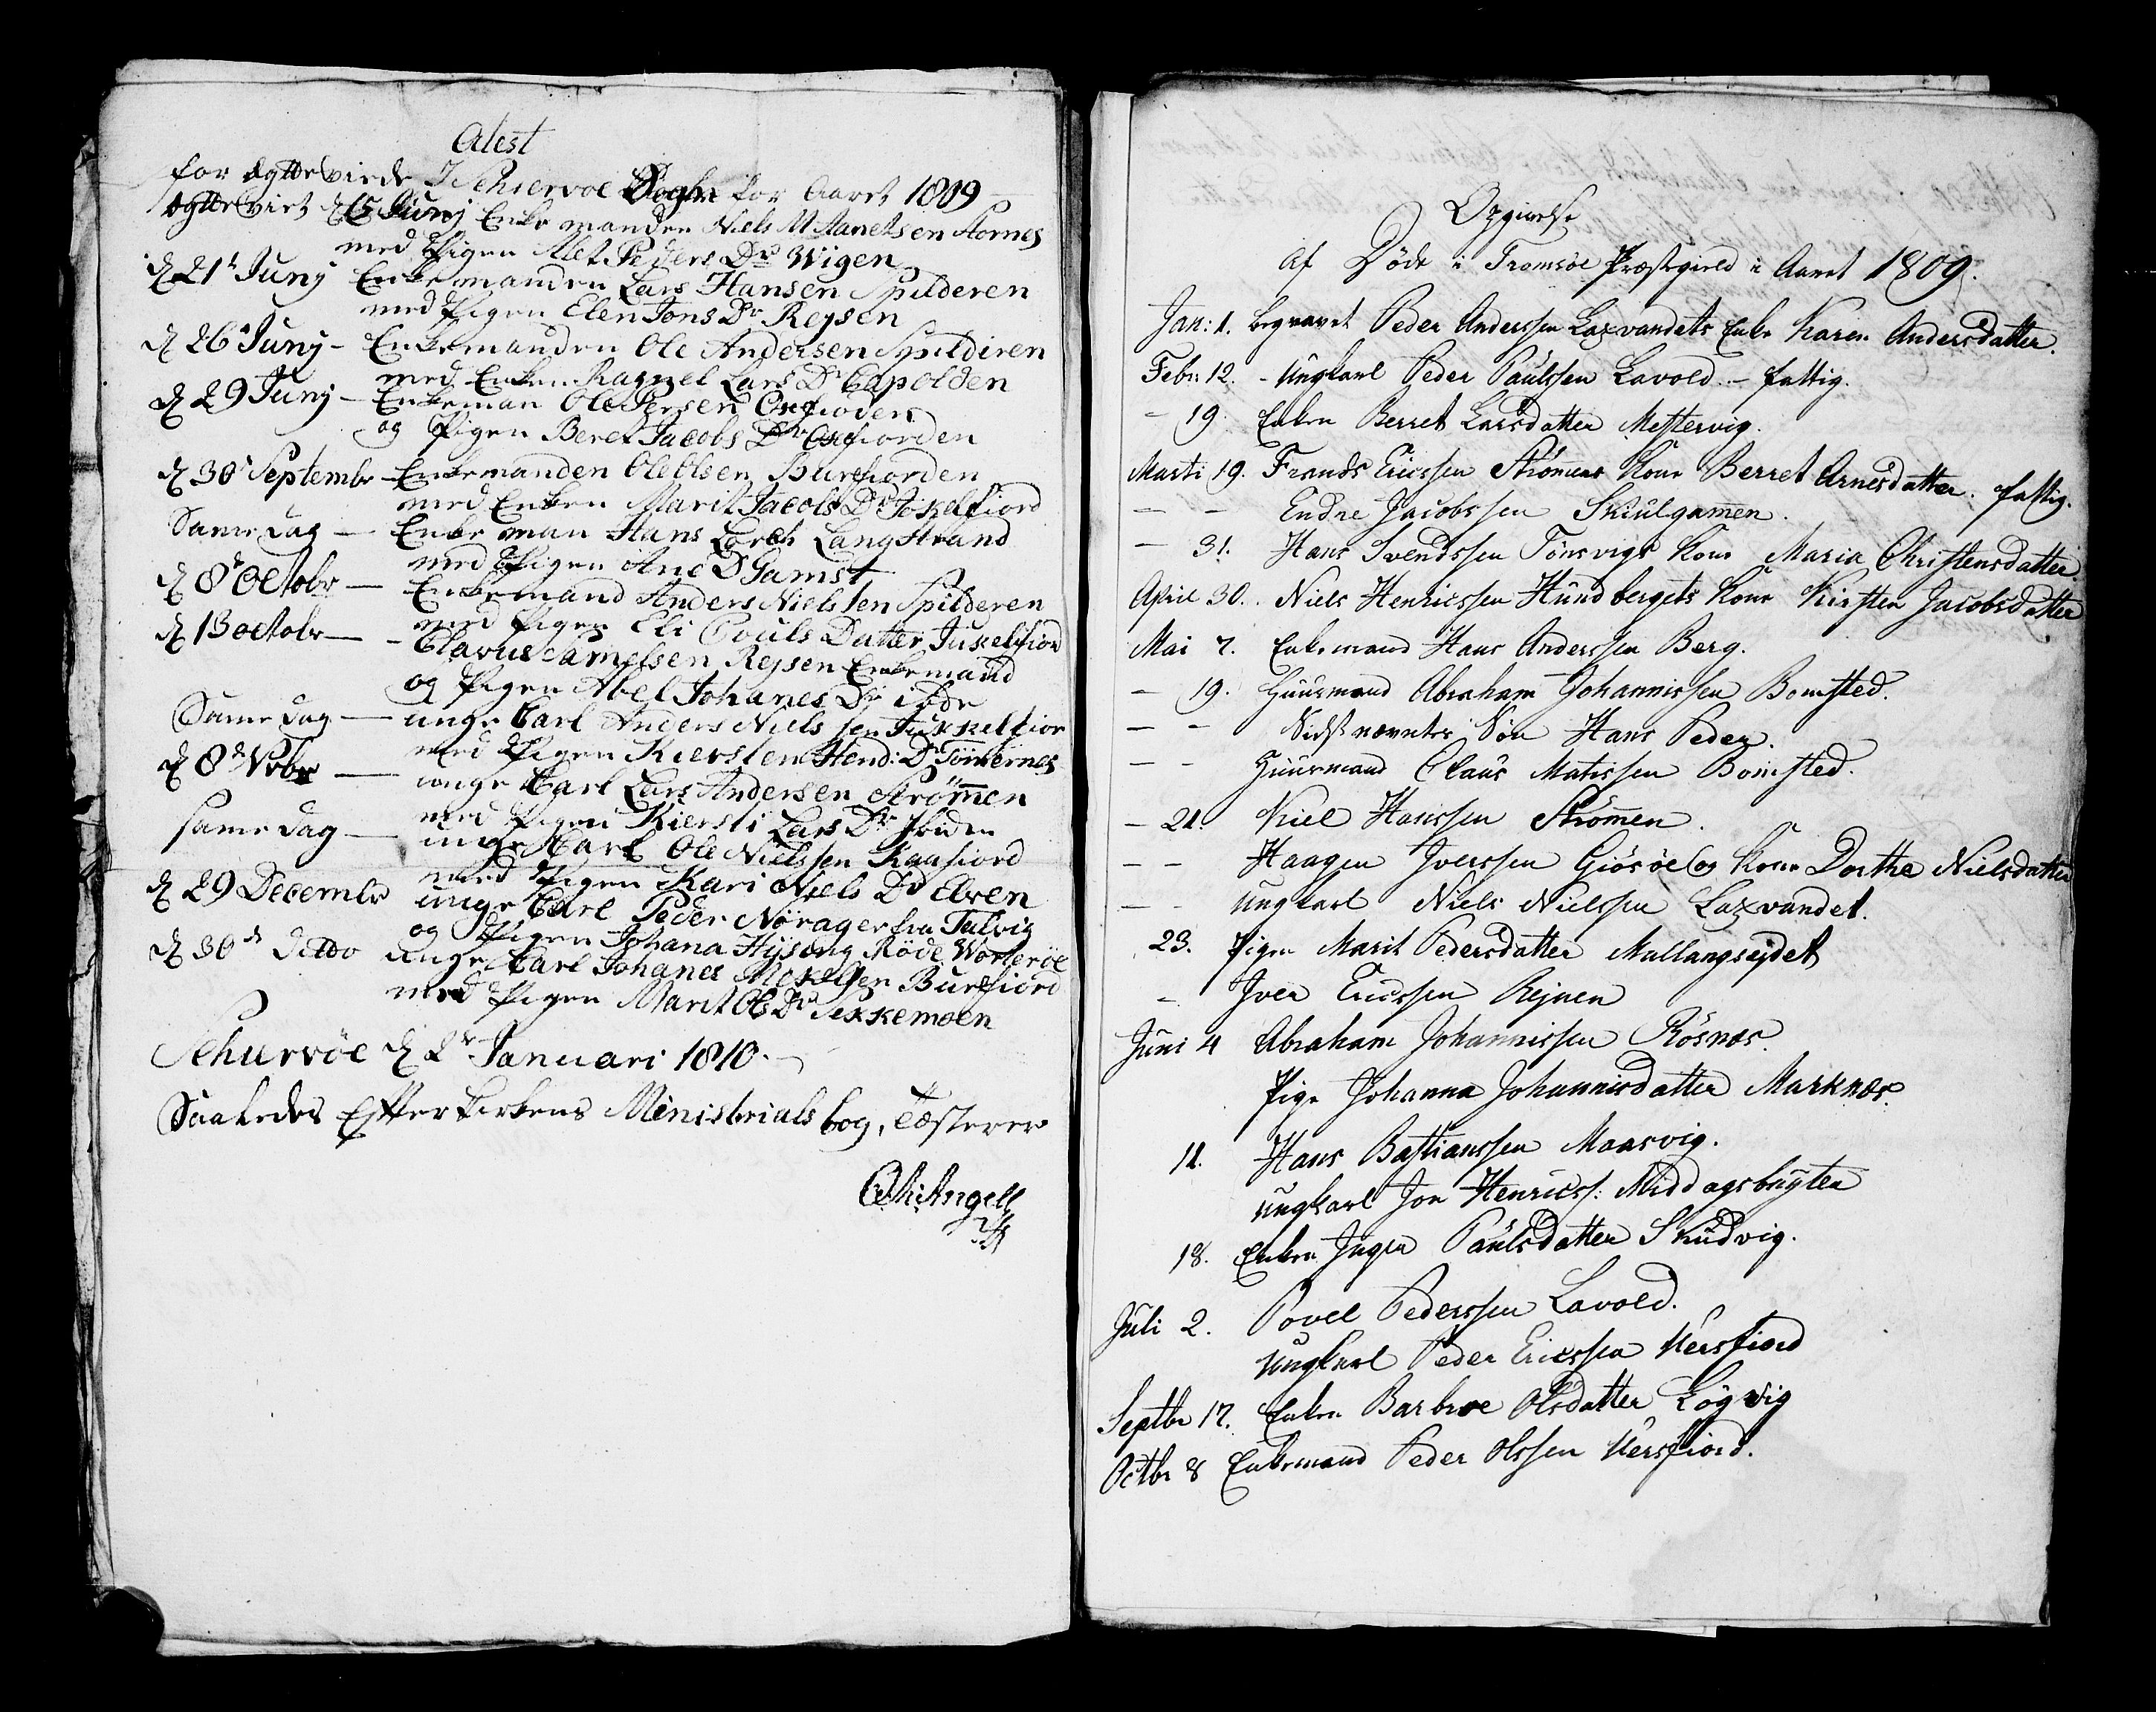 Atest
for ægtteviede I Schiervøe Sogn for Aaret 1809
ægtteviet d 15 Junj Enke manden Niels M Aanetsen Hornes
med Pigen Alet Peders Dr Wigen
d 21t Junj Enkemanden Lars Hansen Spilderen
med Pigen Elen Jons Dr Rejsen
d 26t Junj - Enkemanden Ole Andersen Spildiren
med Enken Ragnel Lars Dr Capolden
d 29 Junj - Enkeman Ole Persen Oxfiorden
og Pigen Beret Jacobs Dr Oxfiorden
d 30t Septembr - Enkemanden Ole Olsen Burfiorden
med Enken Marit Jacobs Dr Jokelfiord
Same dag - Enke man Hans Lorch Langstrand
med Pigen Ane D Gamst
d 8t Octobr - Enkemand Anders Nielssen Spilderen
med Pigen Eli Pouls Datter Jukelfiord
d 13 octobr - - Clavus Samelsen Rejsen Enkemand
og Pigen Abel Johanes Dr ibde
Same dag - unge Carl Anders Nielssen Jukkelfior
med Pigen Kiersten Hend: Dr Tömernes
d 8d Nvbr - unge Carl Lars Andersen Strömmen
med Pigen Kiersti Lars Dr
same dag - unge Karl Ole Nielssen Kaafiord
med Pigen Kari Niels Dr Elven
d 29 Decembr unge Carl Peder Nörager fra Talvig
og Pigen Johana Hysing Røde Worterøe
d 30t ditto unge Carl Johanes Mekelsen Burfiord
med Pigen Marit Ols Dr Sekkemoen
Schurvöe d 2t Januari 1810.
Saaledes Efter Kirkens Ministrials bog, Tæsterer
Ch: Angell
Opgivelse
Af Døde i Tromsöe Præstegield i Aaret 1809.
Jan: 1. begravet Peder Anderssen Laxvandets Enke Karen Andersdatter.
Febr: 12. - Ungkarl Peder Paulssen Lavold. - fattig.
- 19. Enken Berret Larsdatter Mestervig.
Marti 19. Frands Ericssen Strömmens Kone Berret Arnesdatter. fattig.
- - Endre Jacobssen Skiulgammen.
- 31. Hans Svendssen Tönsvigs Kone Maria Christensdatter.
April 30. Niels Henricssen Hundbergets Kone Kirsten Jacobsdatter
Mai 7. Enkemand Hans Anderssen Berg.
- 19. Huusmand Abraham Johannissen Bomsted.
- - Sidstnævntes Søn Hans Peder.
- - Huusmand Claus Matissen Bomsted.
- 21. Niel Hanssen Strömmen.
- - Haagen Iverssen Giösöe og Kone Dorthe Nielsdatter
- - Ungkarl Niels Nielssen Laxvandet.
23. Pigen Marit Pedersdatter Mallangseydet
- Iver Ericssen Rejnen
Juni 4 Abraham Johannissen Rösnæs.
Pige Johanna Johannisdatter Marknæs.
11. Hans Bastianssen Maasvig.
ungkarl Jon Henricss: Middagsbugten
18. Enken Inger Paulsdatter Skudvig.
Juli 2. Povel Pederssen Lavold.
Ungkarl Peder Ericssen Kersfiord
Septbr 17. Enken Barbroe Olsdatter Lögvig
Octbr 8 Enkemand Peder Olssen Kersfiord.